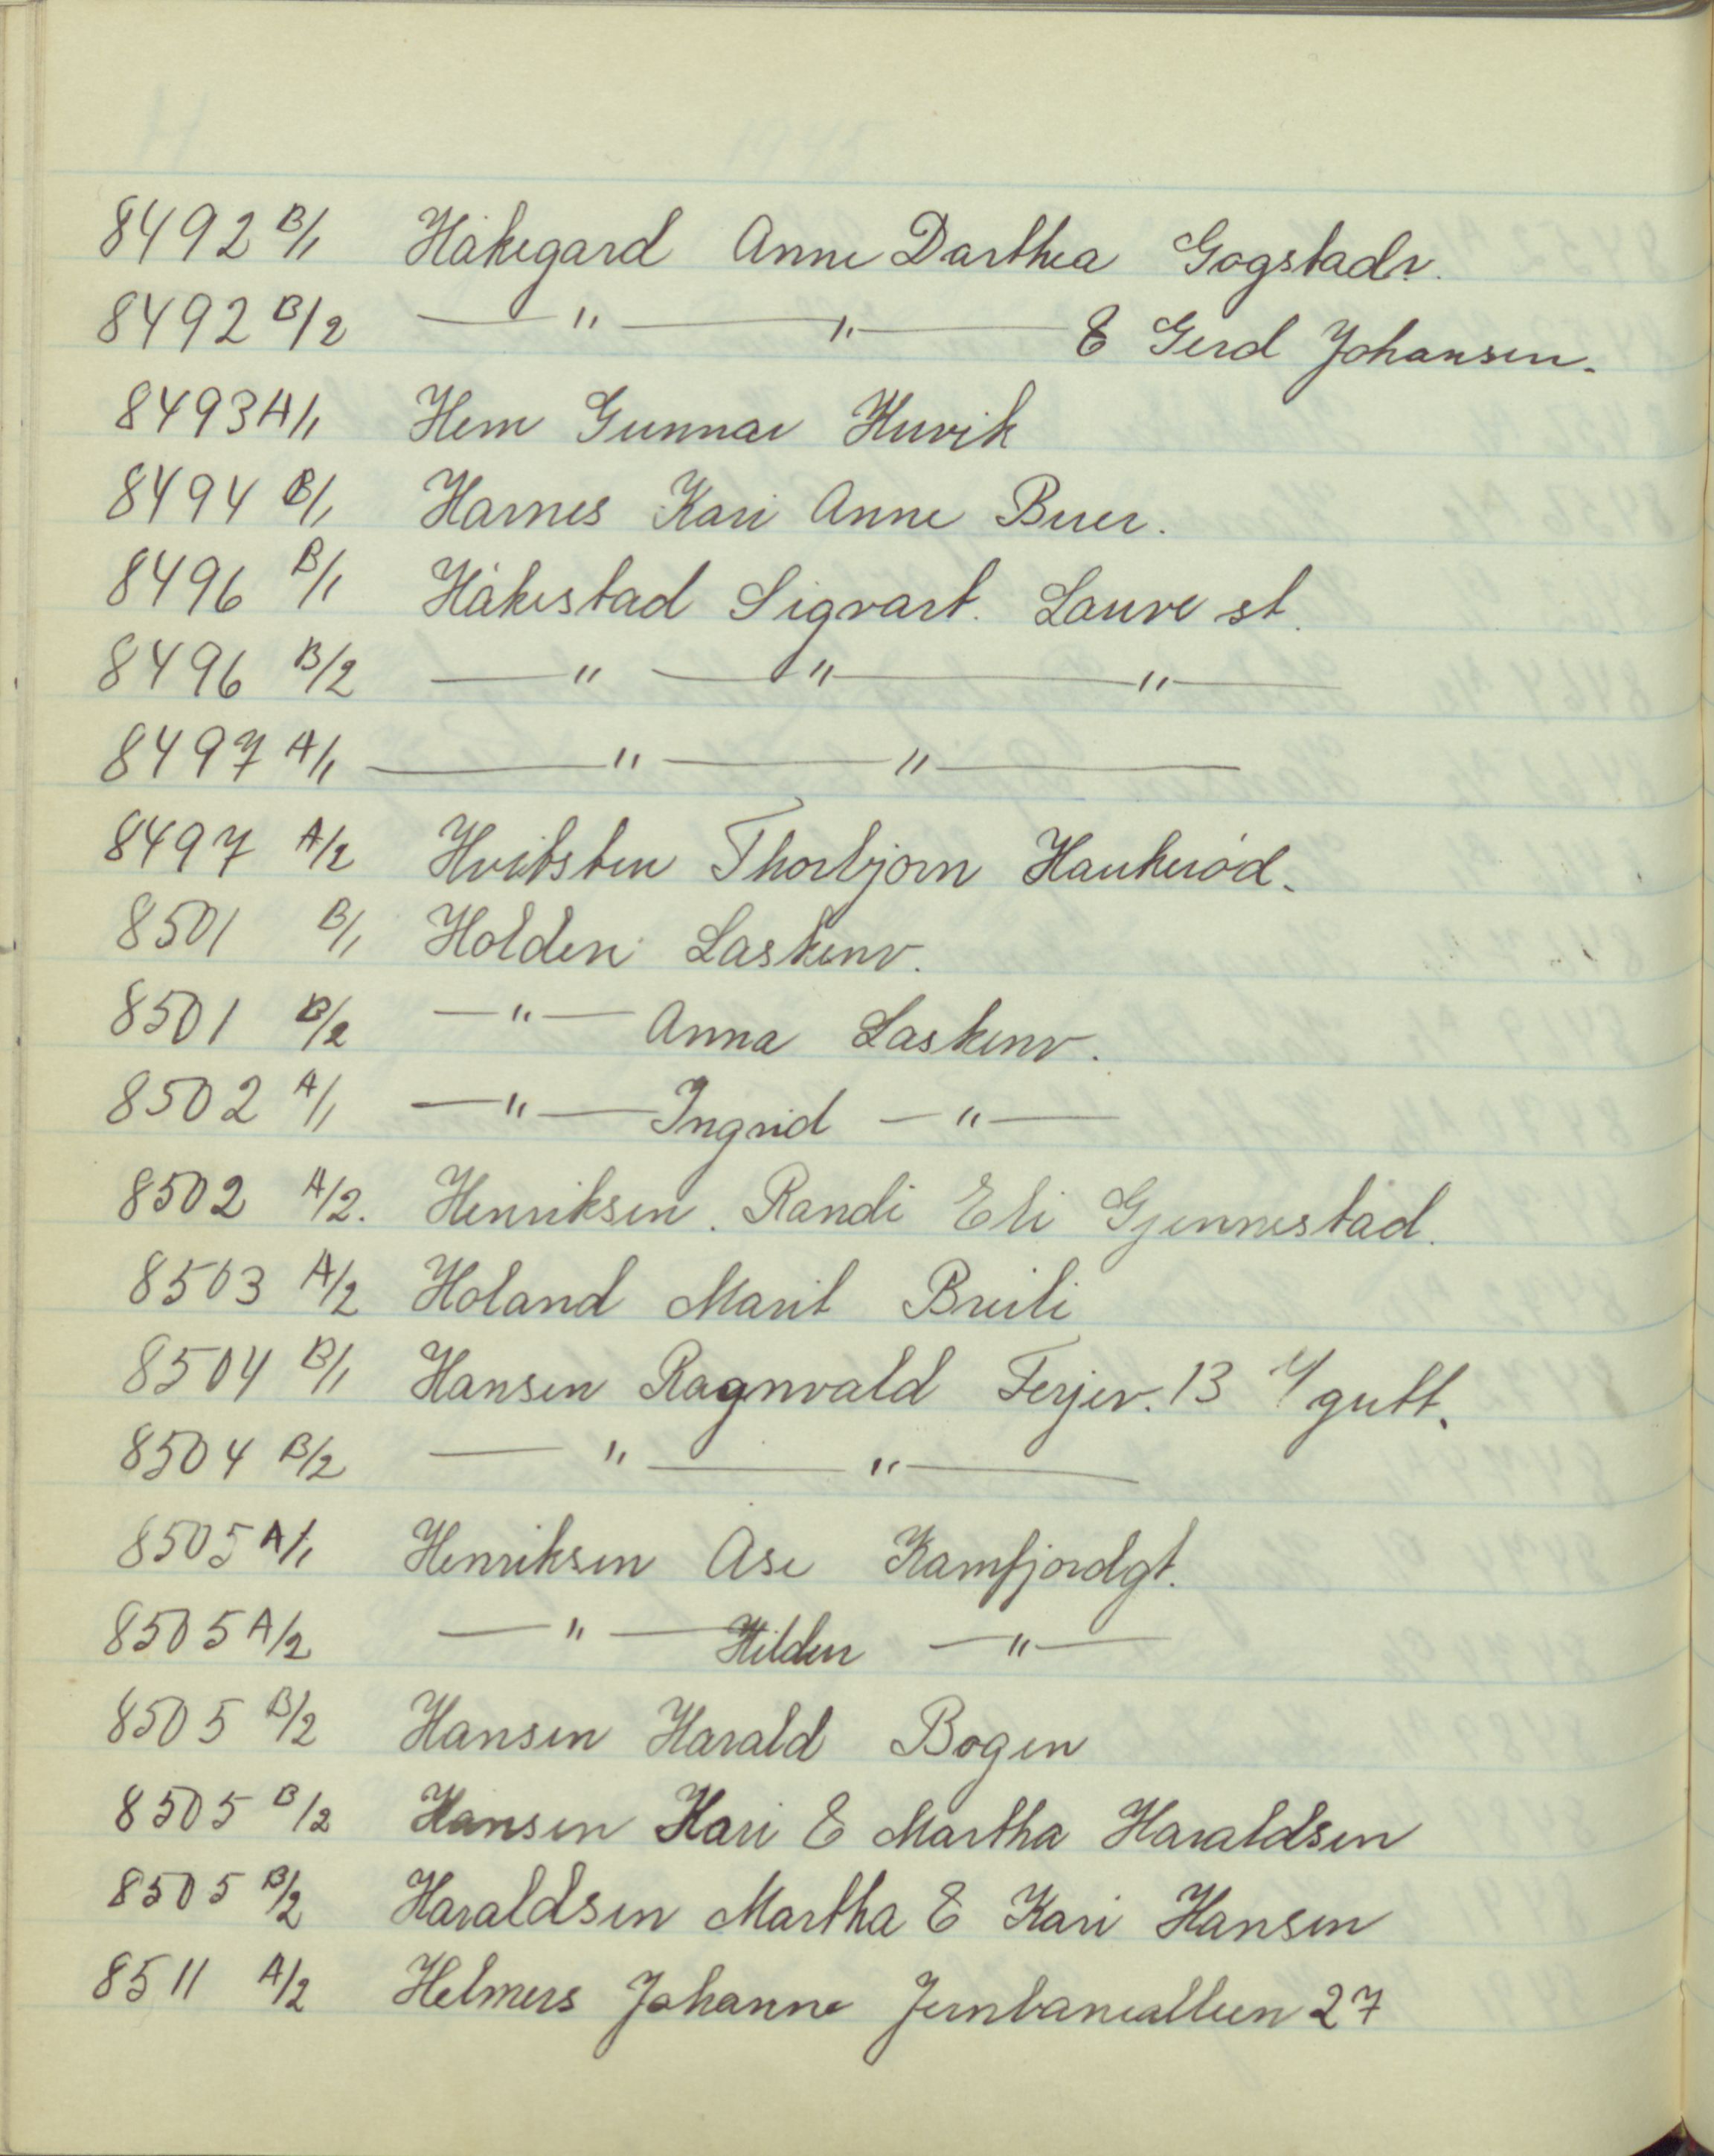 8492 B/1 Håkegård Anne Darthea Gogstadv.
8492 B/2 — " — " — & Gerd Johansen.
8493 A/1 Hem Gunnar Huvik
8494 B/1 Harnes Kari Anne Buer.
8496 B/1 Håkestad Sigvart. Lauve st.
8496 B/2 — " — " — " —
8497 A/1 — " — " —
8497 A/2 Hvitsten Thorbjørn Haukerød.
8501 B/1 Holden Laskenv.
8501 B/2 — " — Anna Laskenv.
8502 A/1 — " — Ingrid — " —
8502 A/2. Henriksen. Randi Eli Gjennestad.
8503 A/2 Holand Marit Breili
8504 B/1 Hansen Ragnvald Ferjev. 13 gutt.
8504 B/2 — " — " —
8505 A/1 Henriksen Åse Kamfjordgt.
8505 A/2 — " — Hilden — " —
8505 B/2 Hansen Harald Bogen
8505 B/2 Hansen Kari & Martha Haraldsen
8505 B/2 Haraldsen Martha & Kari Hansen
8511 A/2 Helmers Johanne Jernbanealleen 27